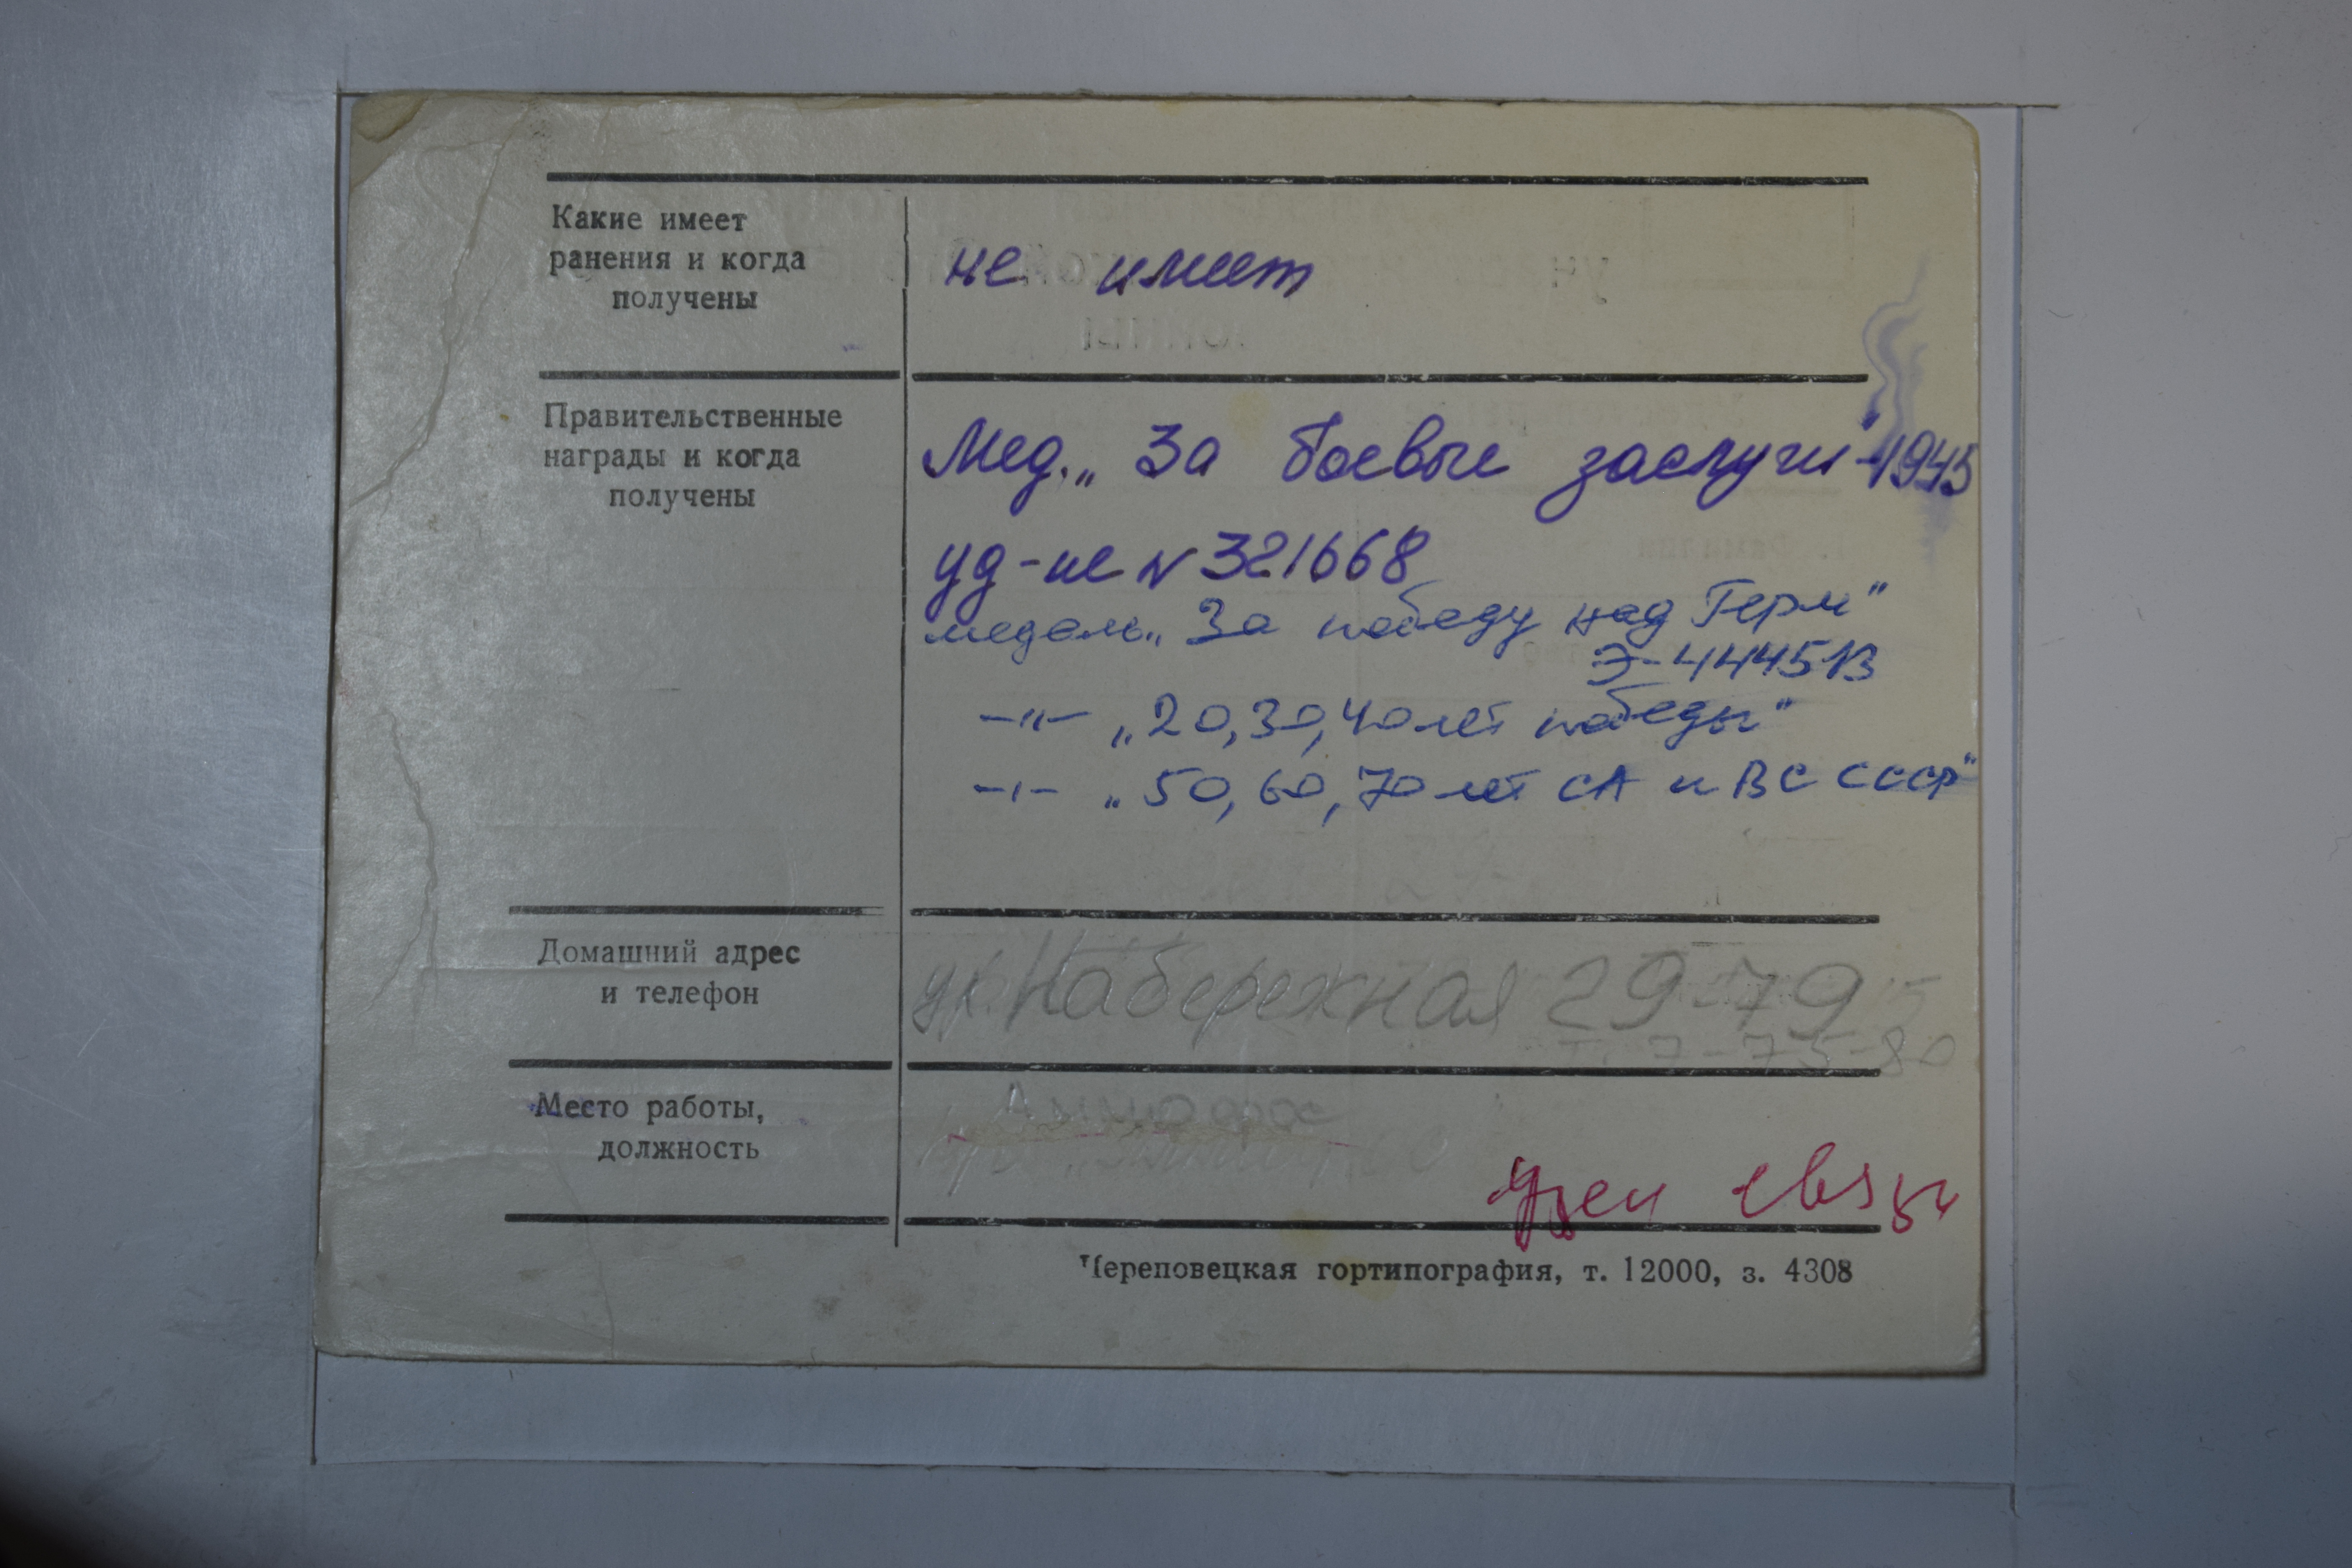 Какие имеет
ранения и когда
получены
не имеет
Правительственные
награды и когда
получены
Мед. „За боевые заслуги" 1945
уд-ие N 321668
медаль „За победу над Герм"
Э-444513
-"- „20, 30, 40 лет победы"
-"- „50, 60, 70 лет СА и ВС СССР"
Домашний адрес
и телефон
ул. Набережная 29-79
т. 7-75-80
Место работы,
должность
Аммофос
Узел связи
Череповецкая гортипография, т. 12000, з. 4308